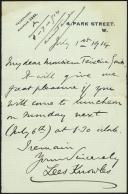 4, PARK STREET,
W.
July 1st 1914
My dear Monsieur Teixeira Gomes
I will give me
great pleasure if you
will come to luncheon
on Monday next
(July 6th) at 1.30 o'clk.
I remain
Yours sincerely
Lees Knowles